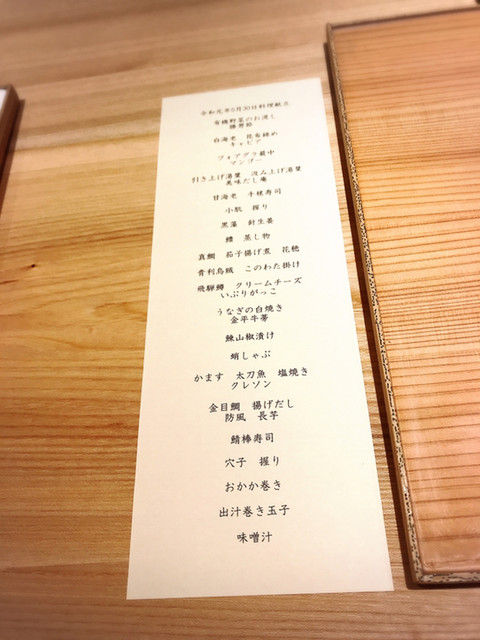 令和元年5月30日料理献立
有機野菜のお浸し
雲丹
白海老　昆布締め
キャビア
フォアグラ最中
マンゴー
引き上げ湯葉　汲み上げ湯葉
美味だし庵
甘海老　手毬寿司
小肌　握り
黒藻　針生姜
鱧　蒸し物
真鯛　茄子揚げ煮　花穂
青利烏賊　このわた掛け
飛騨鱒　クリームチーズ
いぶりがっこ
うなぎの白焼き
金平牛蒡
鰊山椒漬け
蛸しゃぶ
かます　太刀魚　塩焼き
クレソン
金目鯛　揚げだし
防風　長芋
鯖棒寿司
穴子　握り
おかか巻き
出汁巻き玉子
味噌汁